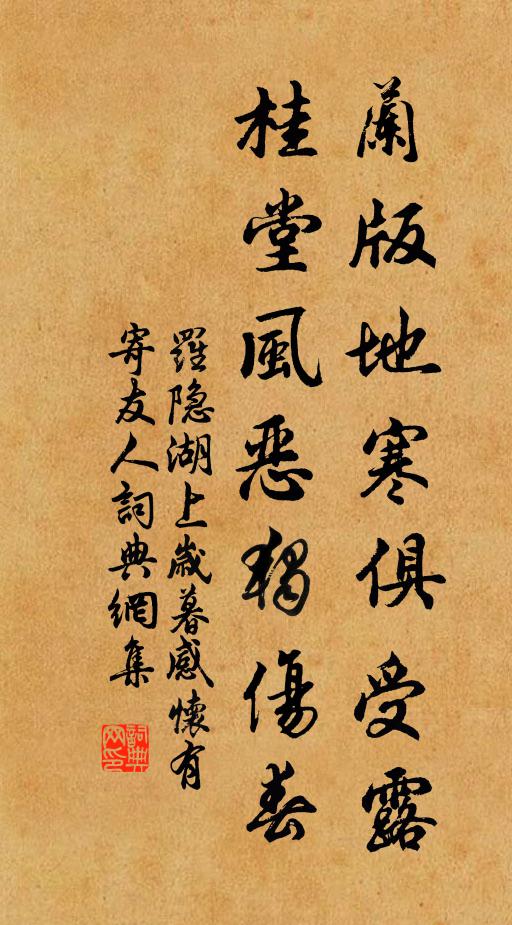 蘭版地寒俱受露
桂堂風恶獨傷春
羅隐湖上歲暮感懷有
寄友人詞典網集
詞典網印